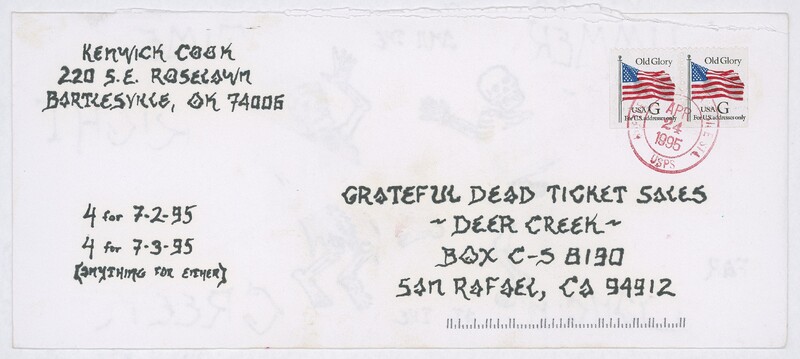 Kenwick Cook
220 S.E. Roselawn
Bartlesville, OK 74006
Old Glory
USA G
For U.S. addresses only
Old Glory
USA G
For U.S. addresses only
APR
24
1995
USPS
4 for 7-2-95
4 for 7-3-95
(anything for either)
Grateful Dead Ticket Sales
~Deer Creek~
Box C-S 8190
San Rafael, CA 94912